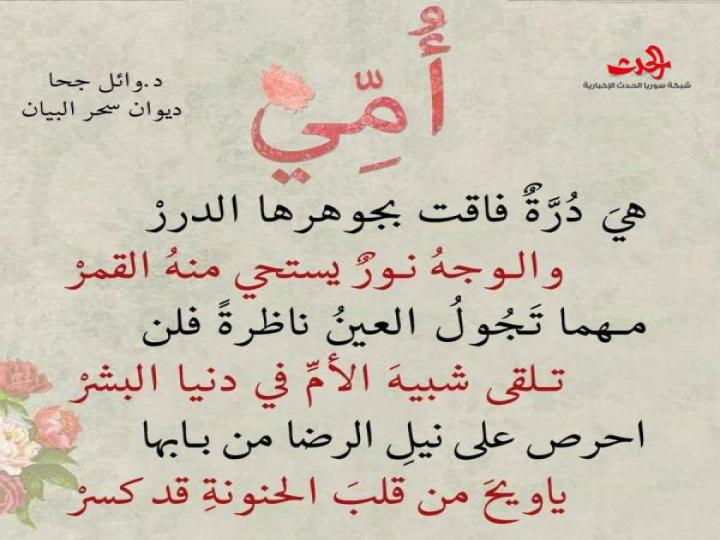 أُمِّي
الحدث
شبكة سوريا الحدث الإخبارية
د.وائل جحا
ديوان سحر البيان
هيَ دُرَّةٌ فاقت بجوهرها الدررْ
والوجهُ نورٌ يستحي منهُ القمرْ
مهما تَجُولُ العينُ ناظرةً فلن
تلقى شبيهَ الأمِّ في دنيا البشرْ
احرص على نيلِ الرضا من بابها
ياويحَ من قلبَ الحنونةِ قد كسرْ